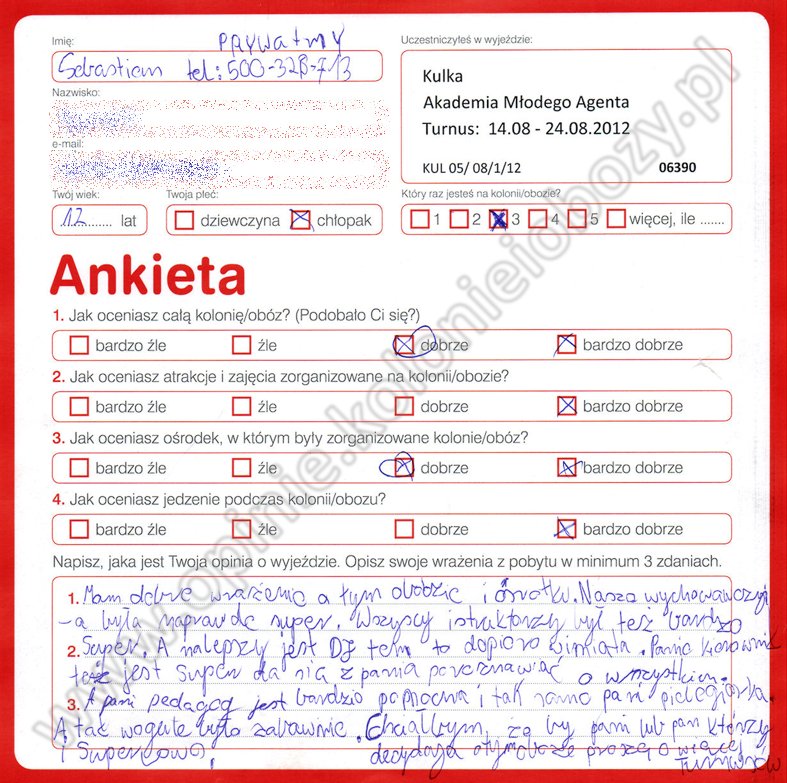 Imię:
PRYWATNY
Sebastian tel: 500-328-713
Nazwisko:
e-mail:
Twój wiek:
12 lat
Twoja płeć:
dziewczyna chłopak
Uczestniczyłeś w wyjeździe:
Kulka
Akademia Młodego Agenta
Turnus: 14.08 - 24.08.2012
KUL 05/ 08/1/12 06390
Który raz jesteś na kolonii/obozie?
1 2 3 4 5 więcej, ile .......
Ankieta
1. Jak oceniasz całą kolonię/obóz? (Podobało Ci się?)
bardzo źle źle dobrze bardzo dobrze
2. Jak oceniasz atrakcje i zajęcia zorganizowane na kolonii/obozie?
bardzo źle źle dobrze bardzo dobrze
3. Jak oceniasz ośrodek, w którym były zorganizowane kolonie/obóz?
bardzo źle źle dobrze bardzo dobrze
4. Jak oceniasz jedzenie podczas kolonii/obozu?
bardzo źle źle dobrze bardzo dobrze
Napisz, jaka jest Twoja opinia o wyjeździe. Opisz swoje wrażenia z pobytu w minimum 3 zdaniach.
1. Mam dobre wrażenie a tym obozie i ośrotku. Nasza wychowawczyi
-a była naprawde super. Wszyscy istruktorzy był też bardzo
2. Super. A nalepszy jest DJ ten to dopiero wimiata. Panie kierownik
też jest super da nia z pania porozmawiać o wszystkiem.
3. A pani pedagog jest bardzio pomocna i tak samo pani pielegiarka.
A tak wogule było zabawnie. Chciałbym, żą by pani lub pan którzy
i Superowo. decydają o tym obozie proszę o więcej
turnusów
www.opinie.kolonieiobozy.pl